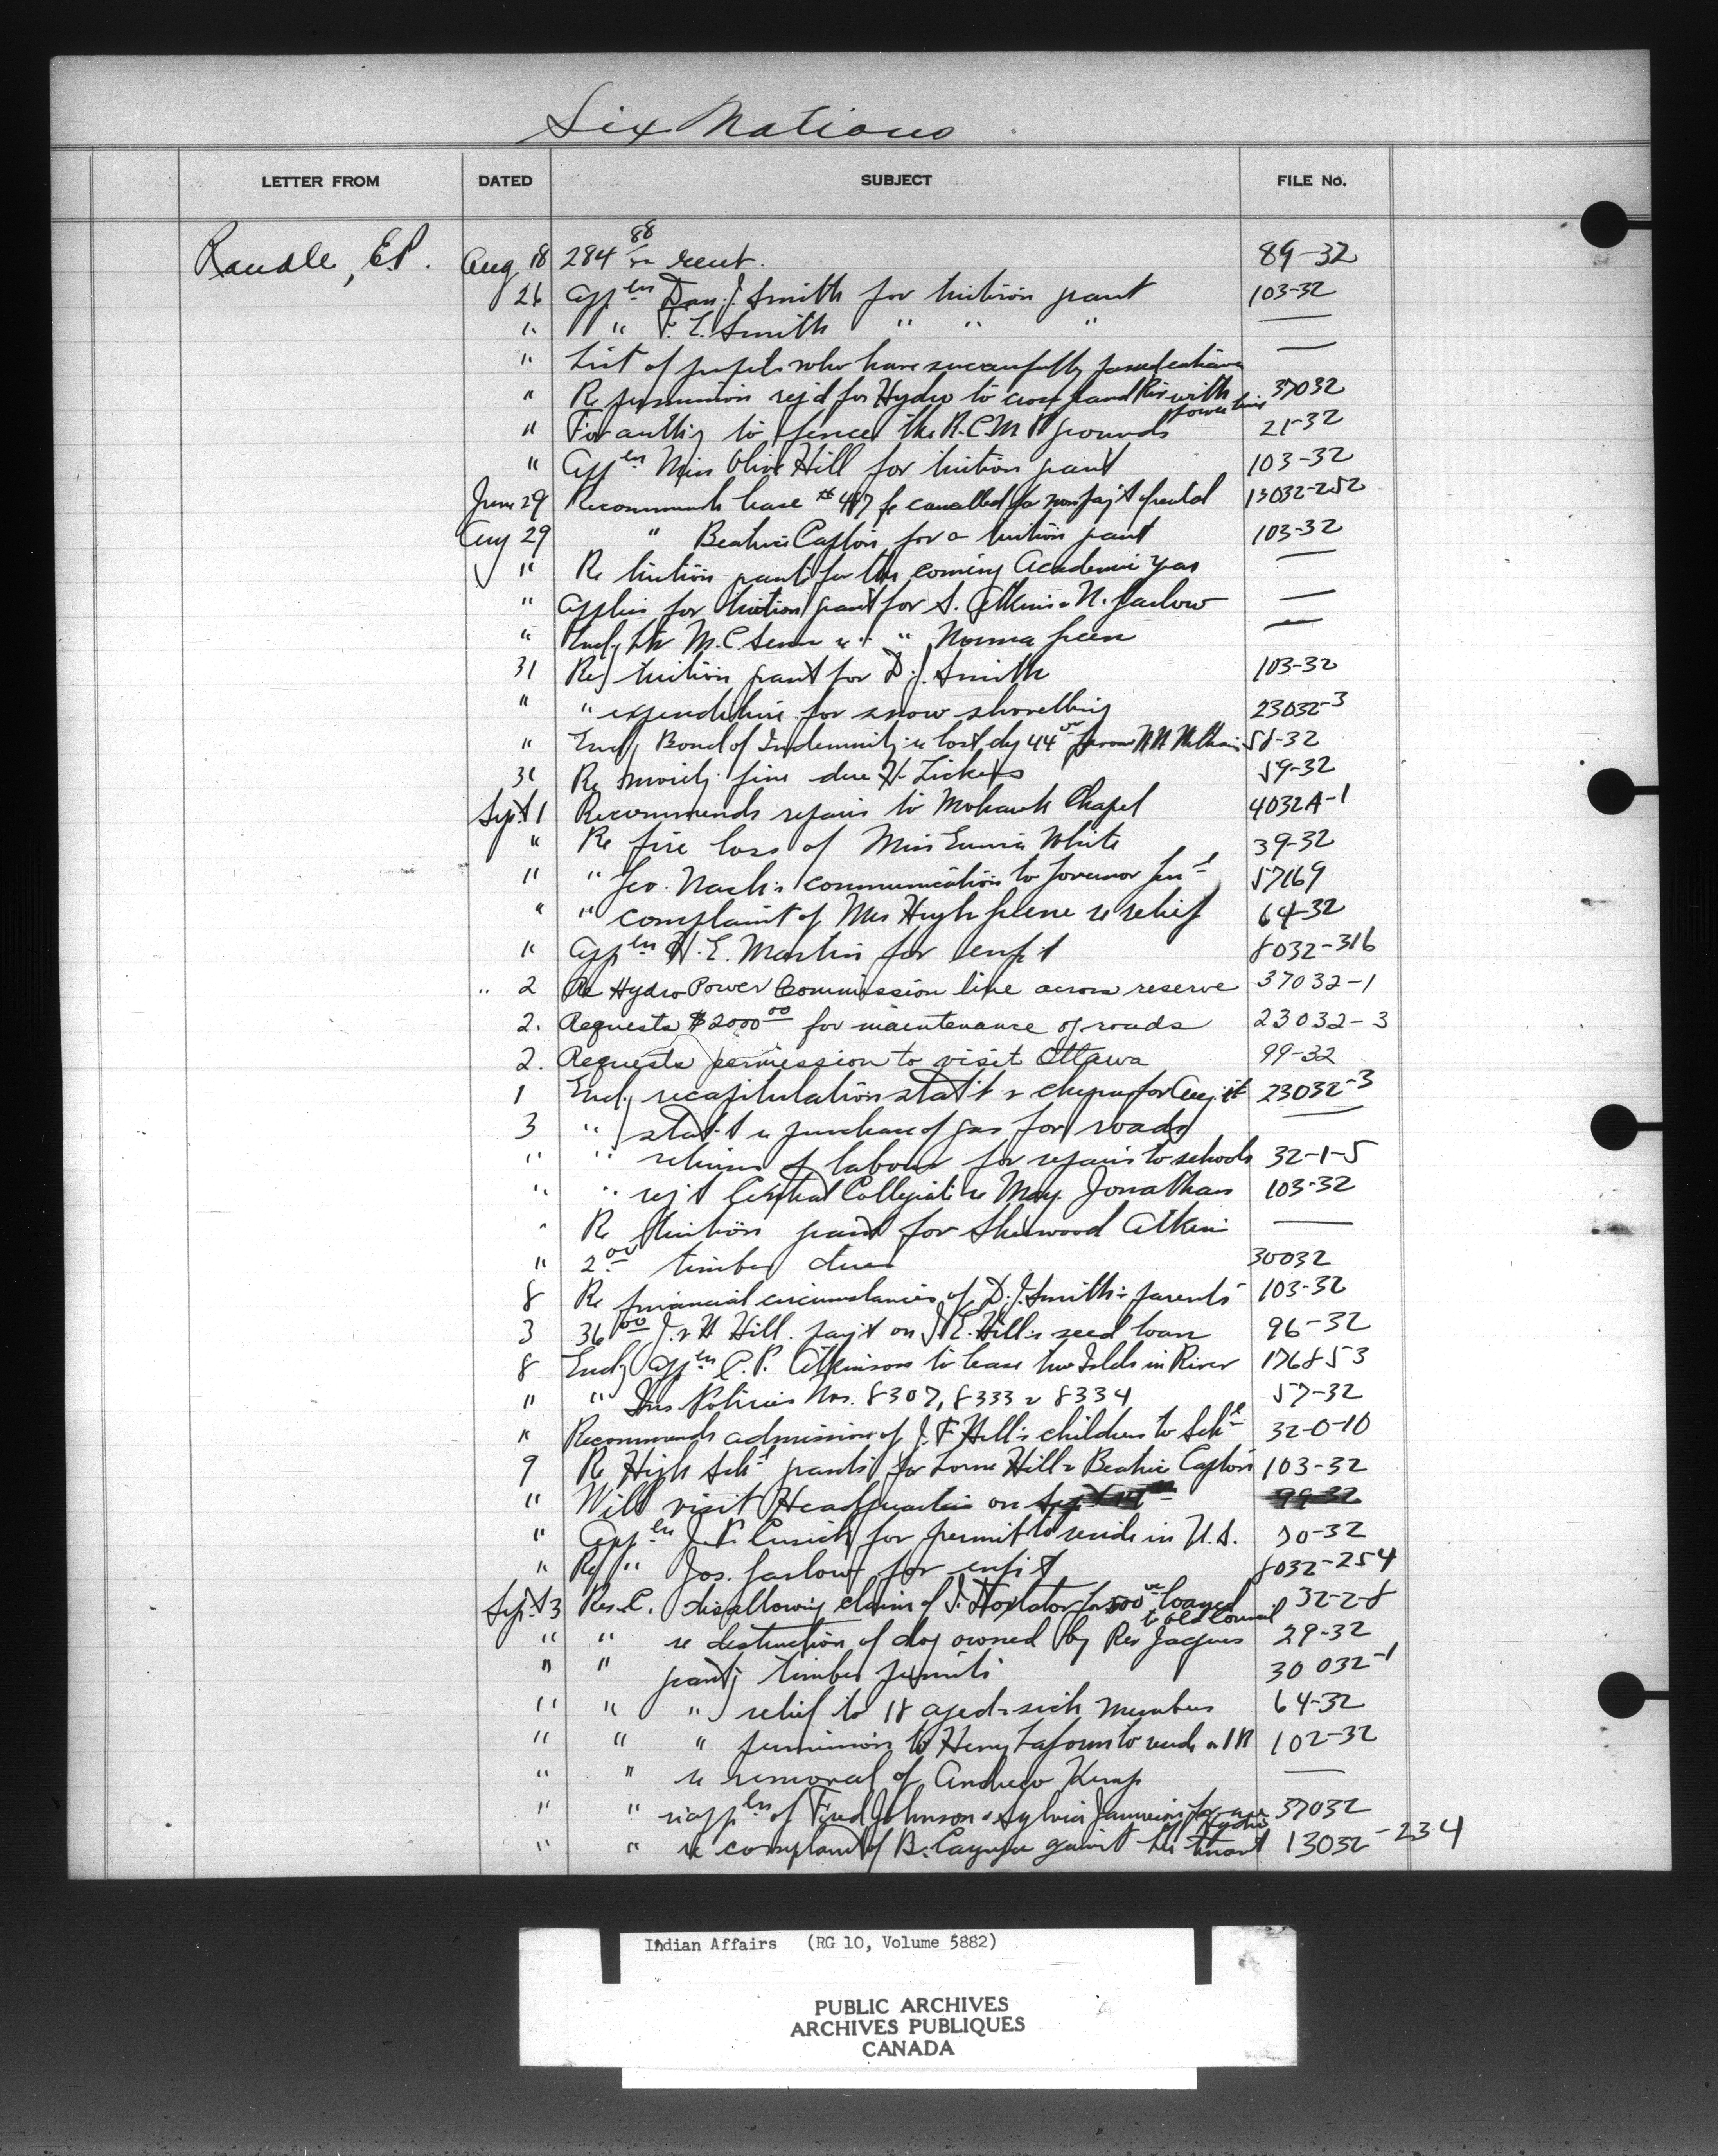 Six Nations
LETTER FROM DATED SUBJECT FILE No.
Randle, E.P. Aug 18 284 88/xx rent. 89-32
26 Appln Dan. J. Smith for tuition grant 103-32
" " F. E. Smith " " " —
" List of pupils who have successfully passed —
" Re permission req'd for Hydro to cross Grand Riv with power line 37032
" For authy to fence the R.C.M.P. grounds 21-32
" Appln Miss Olive Hill for tuition grant 103-32
June 29 Recommends lease #417 be cancelled for nonpay't of rental 13032-252
Aug 29 " Beatrice Capton for a tuition grant 103-32
" Re tuition grants for the coming Academic year —
" Applies for tuition grant for S. Atkins & N. Garlow —
" Encl'g ltr M. C. Senn re " Norma Green —
31 Re tuition grant for D. J. Smith 103-32
" " expenditure for snow shovelling 23032-3
" Encl'g Bond of Indemnity re lost chq 44 58-32
31 Re moiety fine due H. Lickers 59-32
Sept 1 Recommends repairs to Mohawk Chapel 4032A-1
" Re fire loss of Miss Eunice White 39-32
" " Geo. Nash's communication to Governor Genl 57169
" " complaint of Mrs Hugh Greene re relief 64-32
" Appln H. E. Martin for enf't 8032-316
" 2 Re Hydro Power Commission line across reserve 37032-1
2. Requests $2000 00 for maintenance of roads 23032-3
2. Requests permission to visit Ottawa 99-32
1 Encl'g recapitulation stat't & cheques for Aug. 23032-3
3 " stat't re purchase of gas for roads —
" " returns of labour for repairs to schools 32-1-5
" " rep't Central Collegiate re May Jonathan 103-32
" Re tuition grant for Sherwood Atkins —
" 2.00 timber dues 30032
8 Re financial circumstances of D. J. Smith's parents 103-32
3 36 00 J. & H Hill pay't on J. E. Hill's seed loan 96-32
8 Encl'g appln C. P. Atkinson to lease two Islds in River 176853
" " Ins Policies Nos. 8307, 8333 & 8334 57-32
" Recommends admission of J. F. Hill's children to Schl 32-0-10
9 Re High Schl grants for Lorne Hill & Beatrice Capton 103-32
" Will visit Headquarters on Sept 19th 99-32
" Appln J. N. Cusick for permit to reside in U.S. 70-32
" Re " Jos. Garlow for enf't 8032-254
Sept 3 Res. C. disallowing claim of J. for 500 loaned to old Council 32-2-8
" " re destruction of dog owned by Rev Jacques 29-32
" " grant'g timber permits 30032-1
" " " relief to 18 aged & sick members 64-32
" " " permission to Henry Laform to reside on IR 102-32
" " re removal of Andrew Kemp —
" " re appln of Fred Johnson & Sylvia Jamieson for Hydro 37032
" " re complaint of B. Cayuga against his tenant 13032-234
Indian Affairs (RG 10, Volume 5882)
PUBLIC ARCHIVES
ARCHIVES PUBLIQUES
CANADA